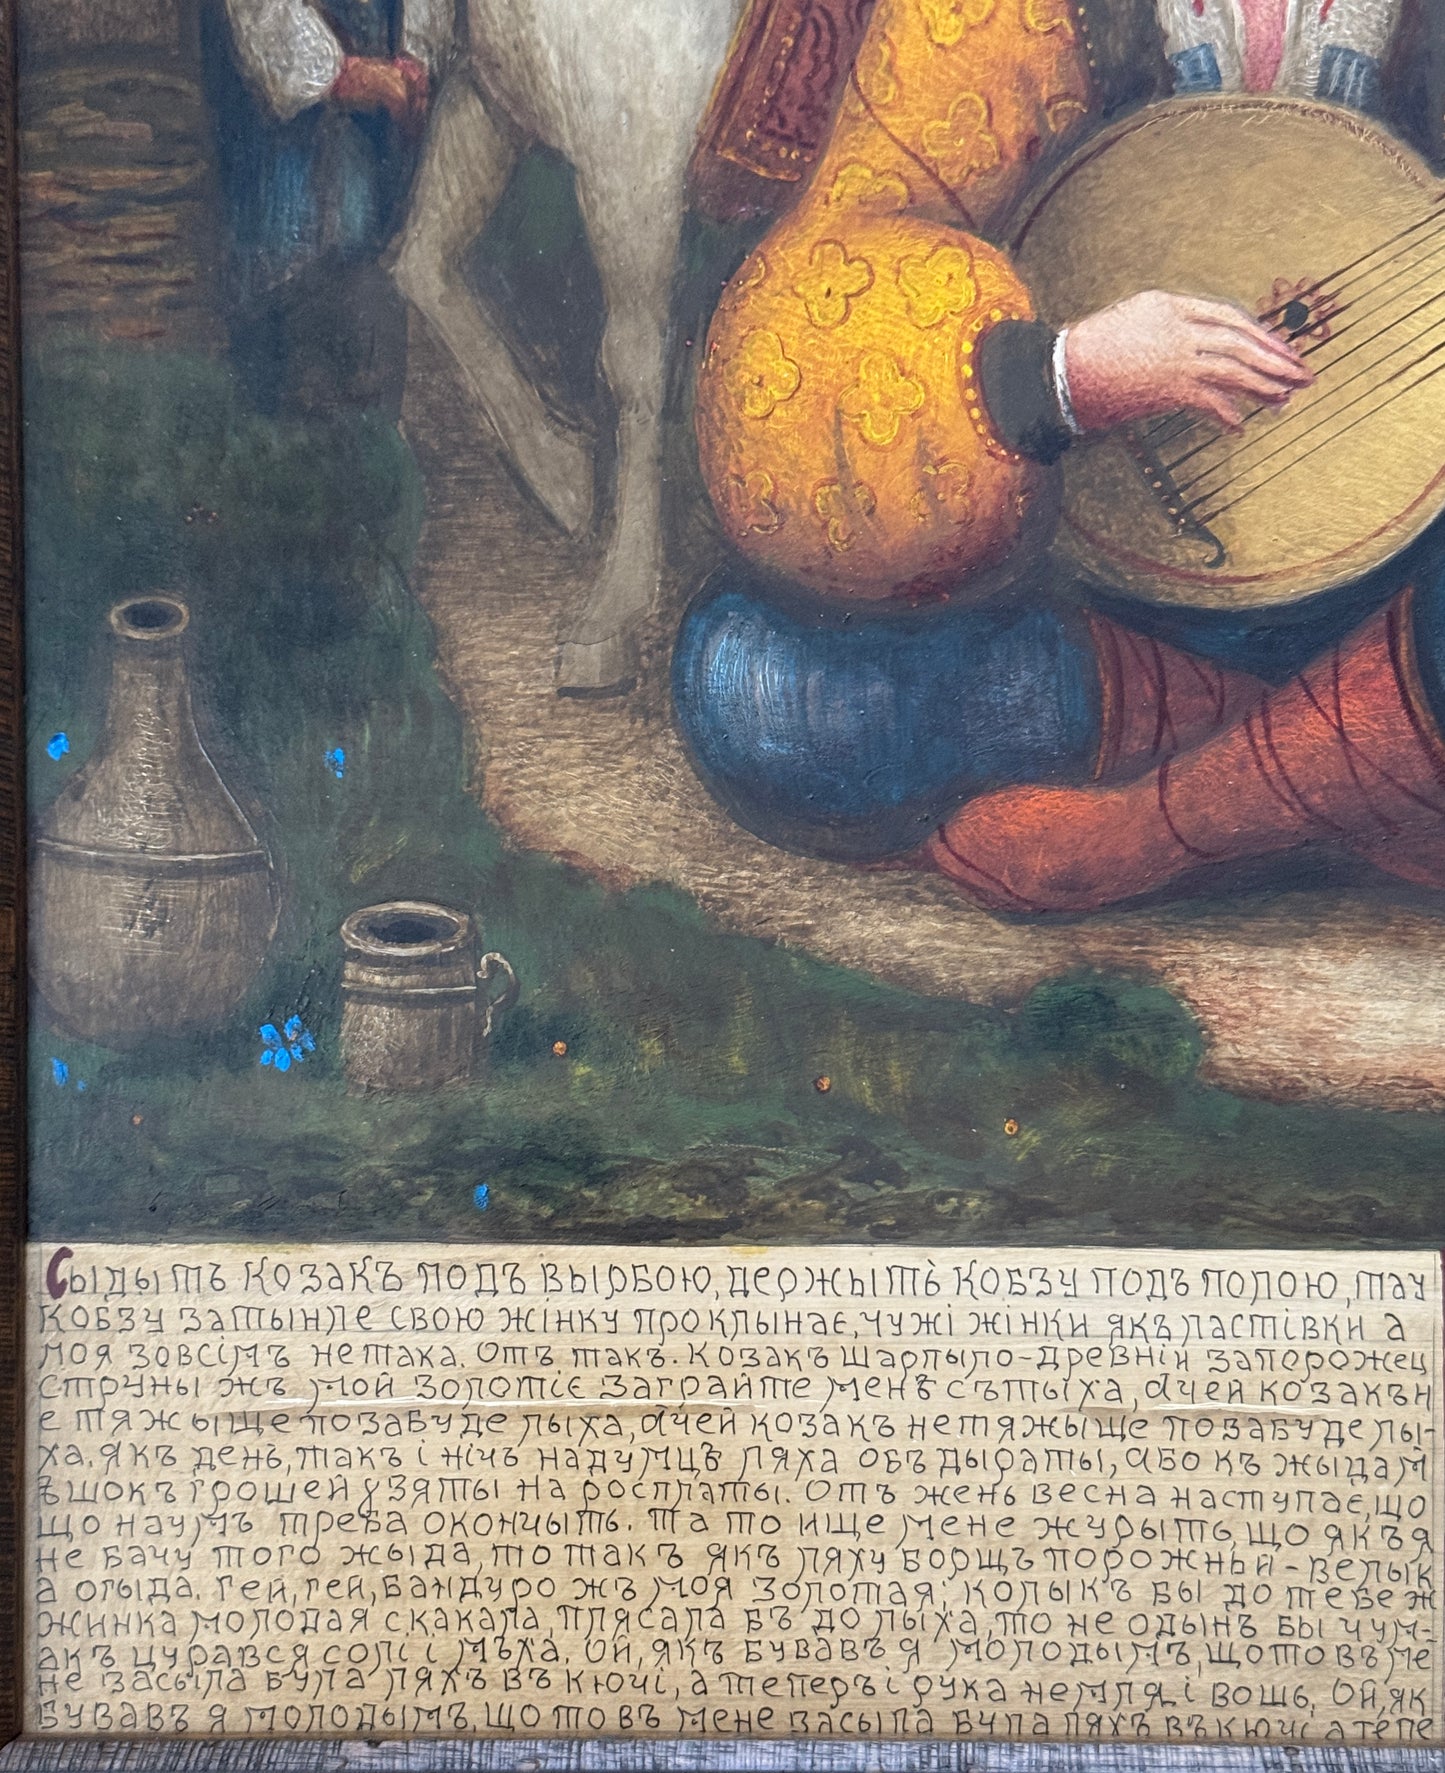 Сыдыть козакъ подъ вырбою, держыть кобзу подъ полою, тау
кобзу затынле свою жінку проклынає, чужі жінки якъ ластівки а
моя зовсімъ нетака. Отъ такъ. Козакъ шарпыло-древній запорожец
струны жъ мой золотіє заграйте менѣ сътыха, ачей козакъ н
е тяжыще позабуде лыха, ачей козакъ нетяжыще позабуде лы-
ха. якъ день, такъ і нічъ надумцѣ ляха объдыраты, або къ жыдам
ѣ шокъ грошей узяты на росплаты. Отъ жень весна наступає, що
що начмъ треба окончыть. Та то ище мене журыть, що якъ я
не бачу того жыда, то такъ якъ ляху борщъ порожньй-велык
а огыда. Гей, гей, бандуро жъ моя золотая; колыкъ бы до тебе ж
жинка молодая скакала, плясала бъ до лыха, то не одынъ бы чум-
акъ цурався солі і мъха. Ой, якъ бувавъ я молодымъ, щотовъ ме
не засыла була ляхъ въ ключі, а теперъ і рука немля і вошь, Ой, як
бувавъ я молодымъ, щотовъ мене засыла була ляхъ въ ключі а тепе